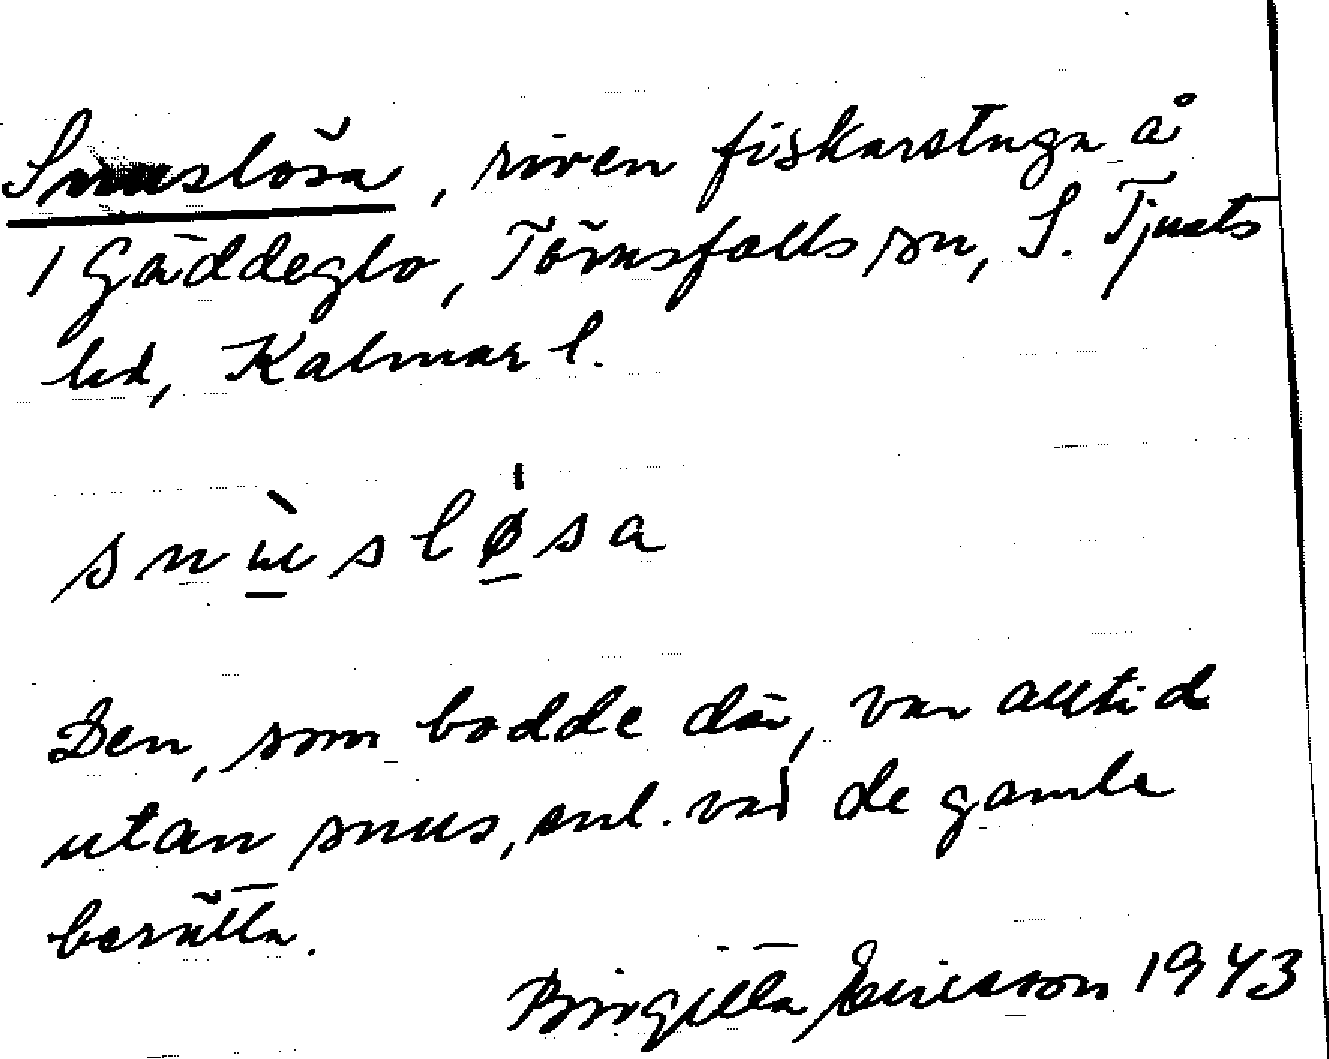 Snuslösa, riven fiskarstuga å
1 Gäddeglo, Törnsfalls sn, S. Tjusts
hd, Kalmar l.
snùsløsa
Den, som bodde där, var alltid
utan snus, enl. vad de gamla
berätta.
Birgitta Ericsson 1943